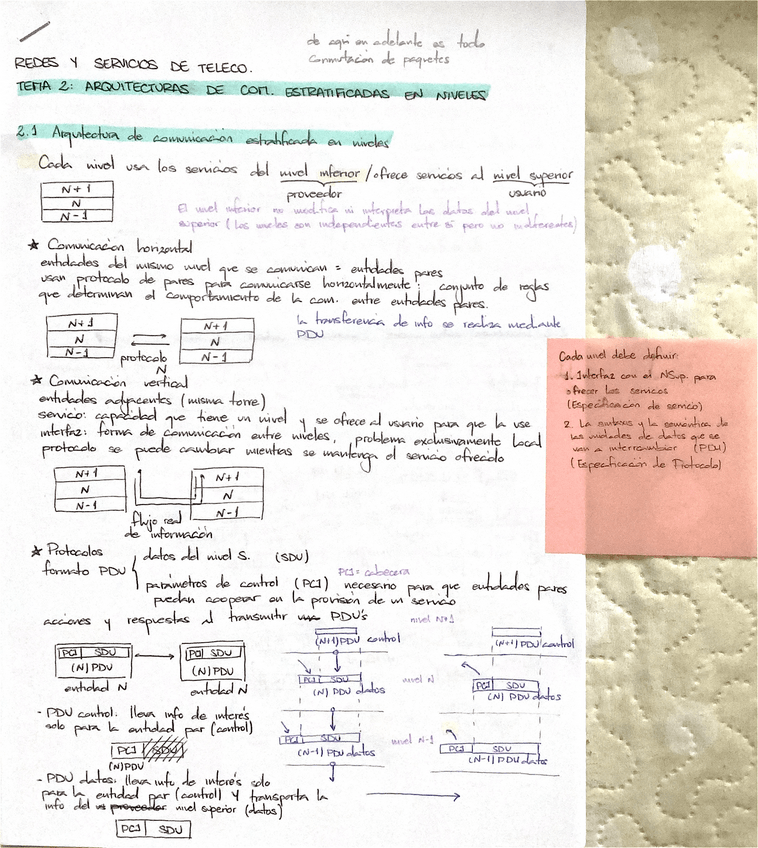 de aquí en adelante es todo
conmutación de paquetes
REDES Y SERVICIOS DE TELECO.
TEMA 2: ARQUITECTURAS DE COM. ESTRATIFICADAS EN NIVELES
2.1 Arquitectura de comunicación estratificada en niveles
Cada nivel usa los servicios del nivel inferior / ofrece servicios al nivel superior
proveedor usuario
N+1
N
N-1
El nivel inferior no modifica ni interpreta los datos del nivel
superior (los niveles son independientes entre sí pero no indiferentes)
★ Comunicación horizontal
entidades del mismo nivel que se comunican = entidades pares
usan protocolo de pares para comunicarse horizontalmente: conjunto de reglas
que determinan el comportamiento de la com. entre entidades pares.
N+1 N+1
N N
N-1 N-1
protocolo
N
la transferencia de info se realiza mediante
PDU
Cada nivel debe definir:
1. Interfaz con el NSup. para
ofrecer los servicios
(Especificación de servicio)
2. La sintaxis y la semántica de
las unidades de datos que se
van a intercambiar (PDU)
(Especificación de Protocolo)
★ Comunicación vertical
entidades adyacentes (misma torre)
servicio: capacidad que tiene un nivel y se ofrece al usuario para que la use
interfaz: forma de comunicación entre niveles, problema exclusivamente local
protocolo se puede cambiar mientras se mantenga el servicio ofrecido
N+1 N+1
N N
N-1 N-1
flujo real
de información
★ Protocolos
formato PDU
datos del nivel S. (SDU)
PCI = cabecera
parámetros de control (PCI) necesario para que entidades pares
puedan cooperar en la provisión de un servicio
acciones y respuestas al transmitir PDU's
nivel N+1
(N+1)PDU control (N+1)PDU control
PCI SDU PCI SDU
(N)PDU (N)PDU
entidad N entidad N
PCI SDU nivel N PCI SDU
(N) PDU datos (N) PDU datos
- PDU control: lleva info de interés
solo para la entidad par (control)
PCI SDU
(N)PDU
PCI SDU nivel N-1 PCI SDU
(N-1) PDU datos (N-1) PDU datos
- PDU datos: lleva info de interés solo
para la entidad par (control) y transporta la
info del proveedor nivel superior (datos)
PCI SDU